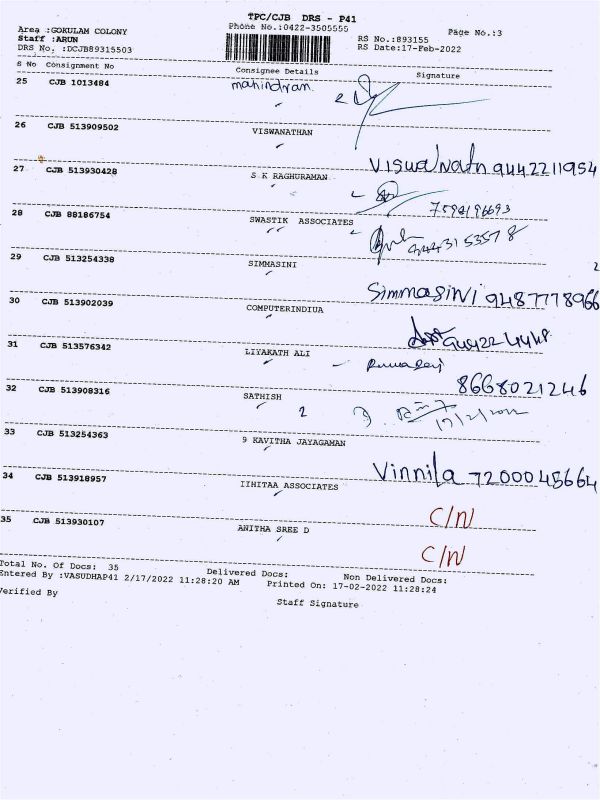 TPC/CJB DRS - P41
Phone No.:0422-3505555
Area :GOKULAM COLONY
Staff :ARUN
DRS No. :DCJB89315503
RS No.:893155
RS Date:17-Feb-2022
Page No.:3
S No Consignment No Consignee Details Signature
25 CJB 1013484 mahindran
26 CJB 513909502 VISWANATHAN
Viswalnatn 9442211954
27 CJB 513930428 S K RAGHURAMAN
28 CJB 88186754 SWASTIK ASSOCIATES
29 CJB 513254338 SIMMASINI
2
Simmasini 9487778966
30 CJB 513902039 COMPUTERINDIUA
31 CJB 513576342 LIYAKATH ALI
8668021246
32 CJB 513908316 SATHISH
2 17/2/2022
33 CJB 513254363 9 KAVITHA JAYAGAMAN
Vinnila 7200045664
34 CJB 513918957 IIHITAA ASSOCIATES
C/N
35 CJB 513930107 ANITHA SREE D
C/N
Total No. Of Docs: 35 Delivered Docs: Non Delivered Docs:
Entered By :VASUDHAP41 2/17/2022 11:28:20 AM Printed On: 17-02-2022 11:28:24
Verified By Staff Signature